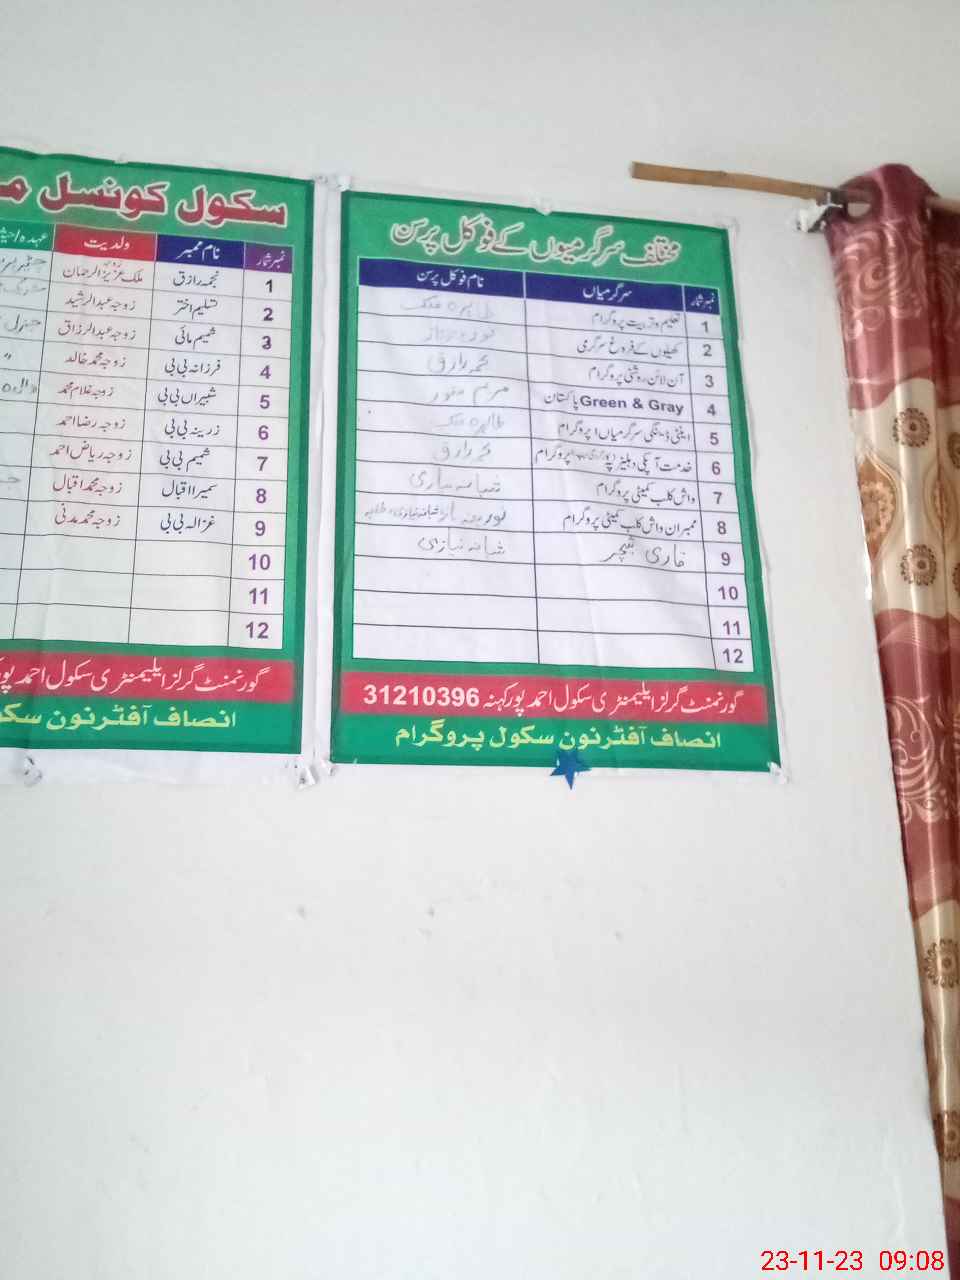 مختلف سرگرمیوں کے فوکل پرسن
نمبر شمار سرگرمیاں نام فوکل پرسن
1 تعلیم و تربیت پروگرام طاہرہ ملک
2 کھیلوں کے فروغ سرگرمی
3 آن لائن روشنی پروگرام نجمہ رازق
4 Green & Gray پاکستان مریم منور
5 اینٹی ڈینگی سرگرمیاں پروگرام طاہرہ ملک
6 خدمت آپکی دہلیز پہ پروگرام نجمہ رازق
7 واش کلب کمیٹی پروگرام شبانہ نیازی
8 ممبران واش کلب کمیٹی پروگرام
9 قاری ٹیچر شبانہ نیازی
10
11
12
گورنمنٹ گرلز ایلیمنٹری سکول احمد پور کہنہ 31210396
انصاف آفٹرنون سکول پروگرام
سکول کونسل
نمبر شمار نام ممبر ولدیت
1 نجمہ رازق زوجہ ملک عزیز الرحمان
2 تسلیم اختر زوجہ عبدالرشید
3 شمیم مائی زوجہ عبدالرزاق جنرل
4 فرزانہ بی بی زوجہ محمد خالد "
5 شبیراں بی بی زوجہ غلام محمد
6 زرینہ بی بی زوجہ رضا احمد
7 شمیم بی بی زوجہ ریاض احمد
8 سمیرا اقبال زوجہ محمد اقبال
9 غزالہ بی بی زوجہ محمد مدنی
10
11
12
گورنمنٹ گرلز ایلیمنٹری سکول احمد پور
انصاف آفٹرنون
23-11-23 09:08